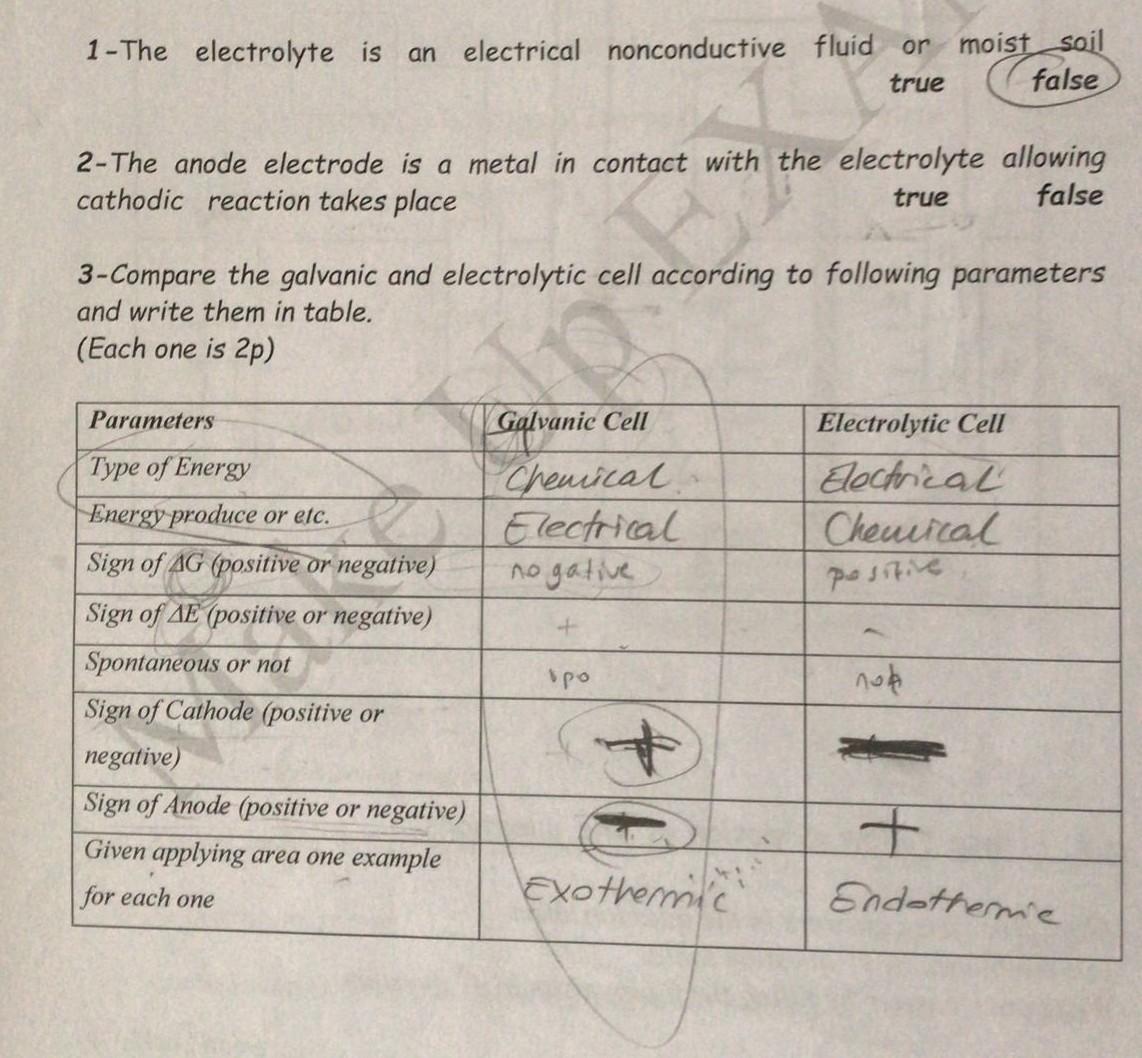 1-The electrolyte is an electrical nonconductive fluid or moist soil
true false
2-The anode electrode is a metal in contact with the electrolyte allowing
cathodic reaction takes place true false
3-Compare the galvanic and electrolytic cell according to following parameters
and write them in table.
(Each one is 2p)
Make Up EXA
Parameters Galvanic Cell Electrolytic Cell
Type of Energy Chemical Electrical
Energy produce or etc. Electrical Chemical
Sign of ΔG (positive or negative) nogative positive
Sign of ΔE (positive or negative) + -
Spontaneous or not spo not
Sign of Cathode (positive or
negative) + -
Sign of Anode (positive or negative) - +
Given applying area one example
for each one Exothermic Endothermic